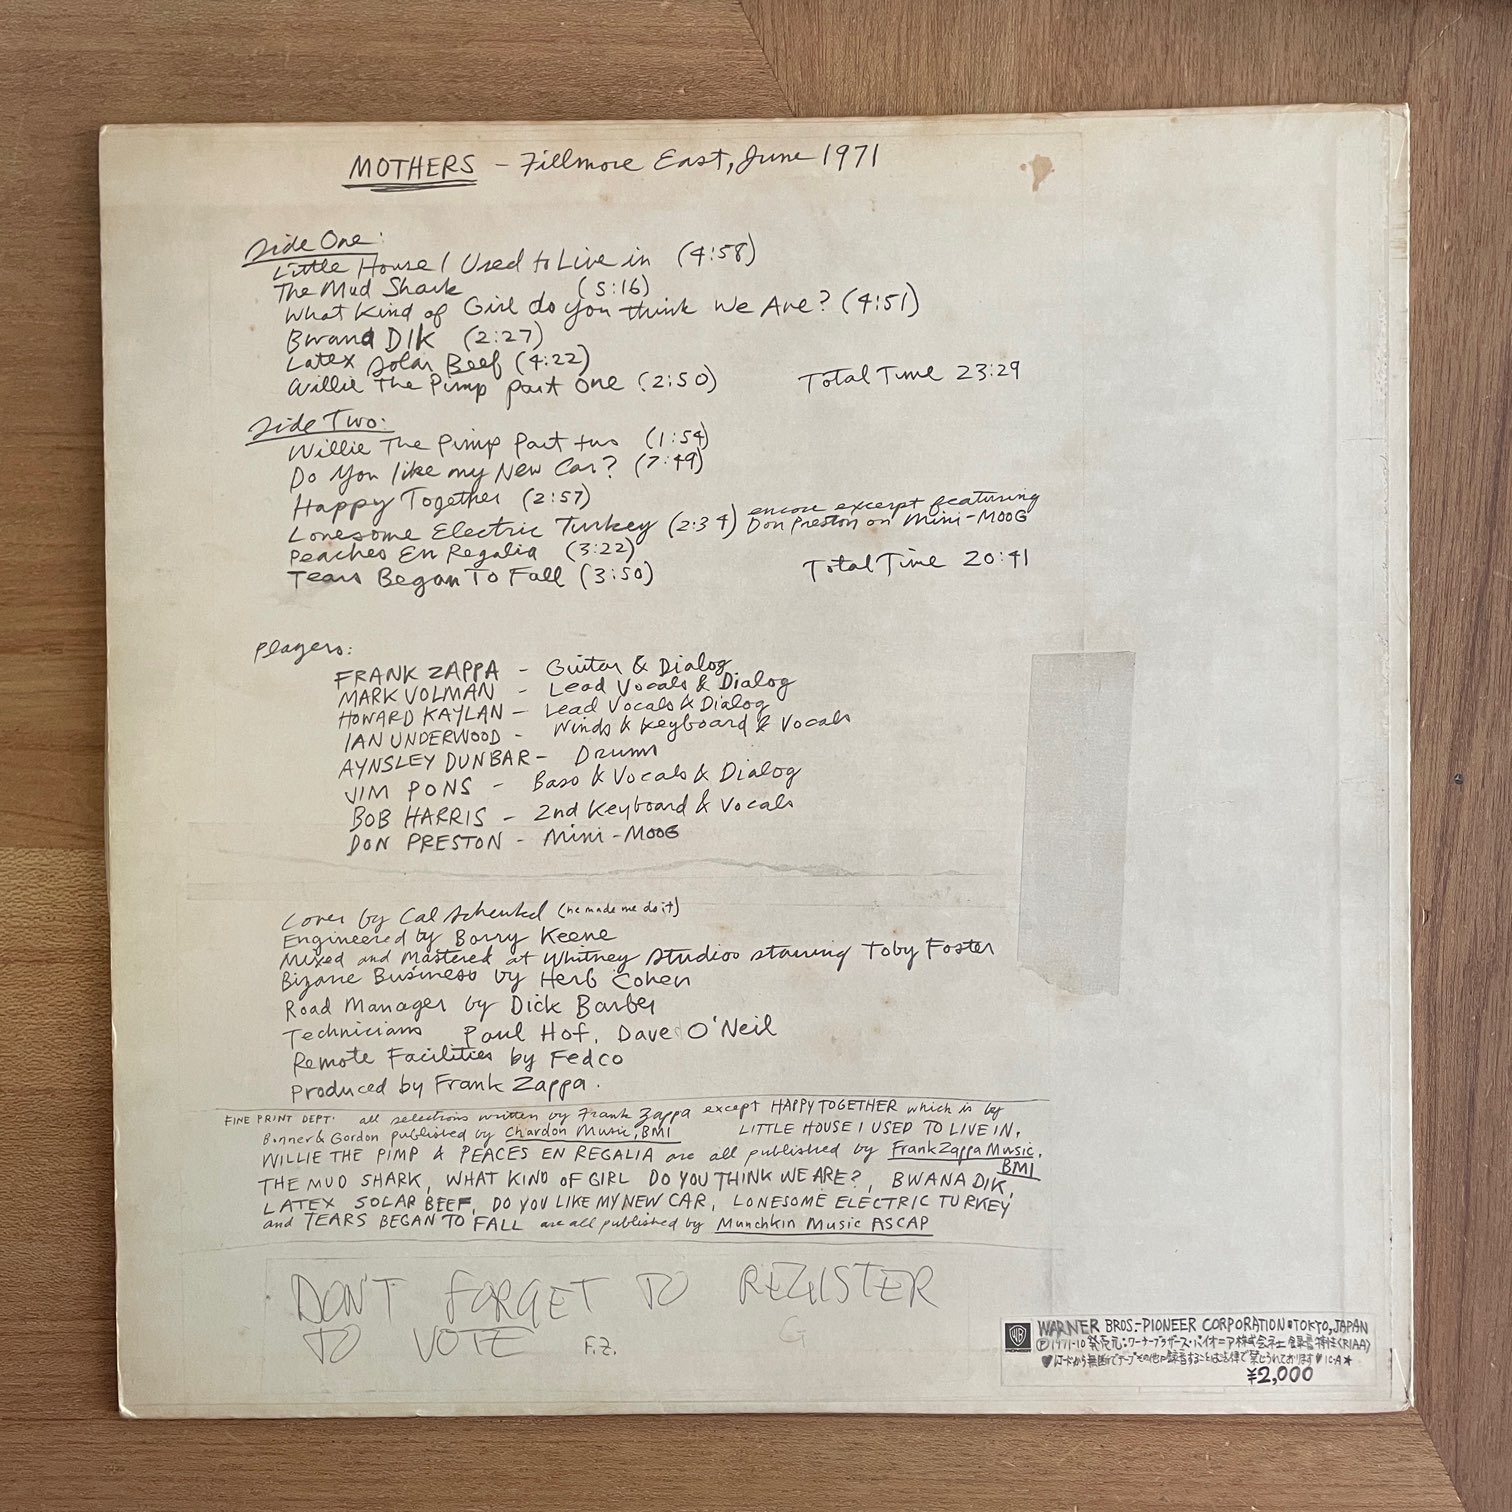 MOTHERS - Fillmore East, June 1971
Side One:
Little House I Used to Live in (4:58)
The Mud Shark (5:16)
What Kind of Girl do you think We Are? (4:51)
Bwana DIK (2:27)
Latex Solar Beef (4:22)
Willie The Pimp part One (2:50)
Total Time 23:29
Side Two:
Willie The Pimp Part two (1:54)
Do You like my New Car? (7:49)
Happy Together (2:57)
Lonesome Electric Turkey (2:34) encore excerpt featuring
Don Preston on Mini-MOOG
Peaches En Regalia (3:22)
Tears Began To Fall (3:50)
Total Time 20:41
Players:
FRANK ZAPPA - Guitar & Dialog
MARK VOLMAN - Lead Vocals & Dialog
HOWARD KAYLAN - Lead Vocals & Dialog
IAN UNDERWOOD - Winds & Keyboard & Vocals
AYNSLEY DUNBAR - Drums
JIM PONS - Bass & Vocals & Dialog
BOB HARRIS - 2nd Keyboard & Vocals
DON PRESTON - Mini-MOOG
Cover by Cal Schenkel (he made me do it)
Engineered by Barry Keene
Mixed and Mastered at Whitney Studios starring Toby Foster
Bizarre Business by Herb Cohen
Road Manager by Dick Barber
Technicians Paul Hof, Dave O'Neil
Remote Facilities by Fedco
Produced by Frank Zappa.
FINE PRINT DEPT. all selections written by Frank Zappa except HAPPY TOGETHER which is by
Bonner & Gordon published by Chardon Music, BMI LITTLE HOUSE I USED TO LIVE IN,
WILLIE THE PIMP & PEACES EN REGALIA are all published by Frank Zappa Music,
BMI
THE MUD SHARK, WHAT KIND OF GIRL DO YOU THINK WE ARE?, BWANA DIK,
LATEX SOLAR BEEF, DO YOU LIKE MY NEW CAR, LONESOME ELECTRIC TURKEY
and TEARS BEGAN TO FALL are all published by Munchkin Music ASCAP
DON'T FORGET TO REGISTER
TO VOTE F.Z. G
WB WARNER BROS.-PIONEER CORPORATION•TOKYO, JAPAN
Ⓟ1971-10 発売元・ワーナーブラザース・パイオニア株式会社 (RIAA)
♥レコードから無断でテープその他に録音することは法律で禁じられております♥ IC-A★
¥2,000